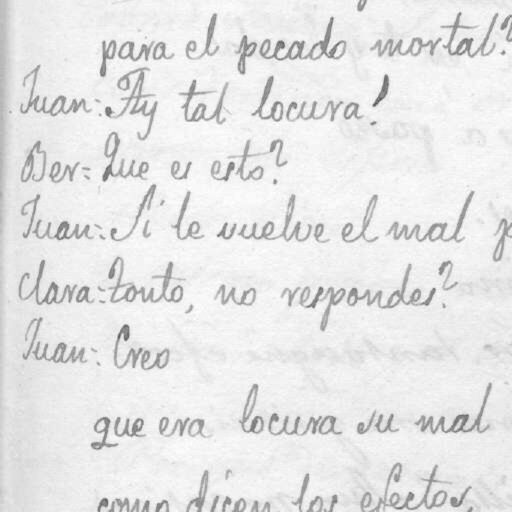 para el pecado mortal?
Juan=Ay tal locura!
Ber=Que es esto?
Juan=Si le vuelve el mal p
Clara=Tonto, no respondes?
Juan=Creo
que era locura su mal
como dicen los efectos,